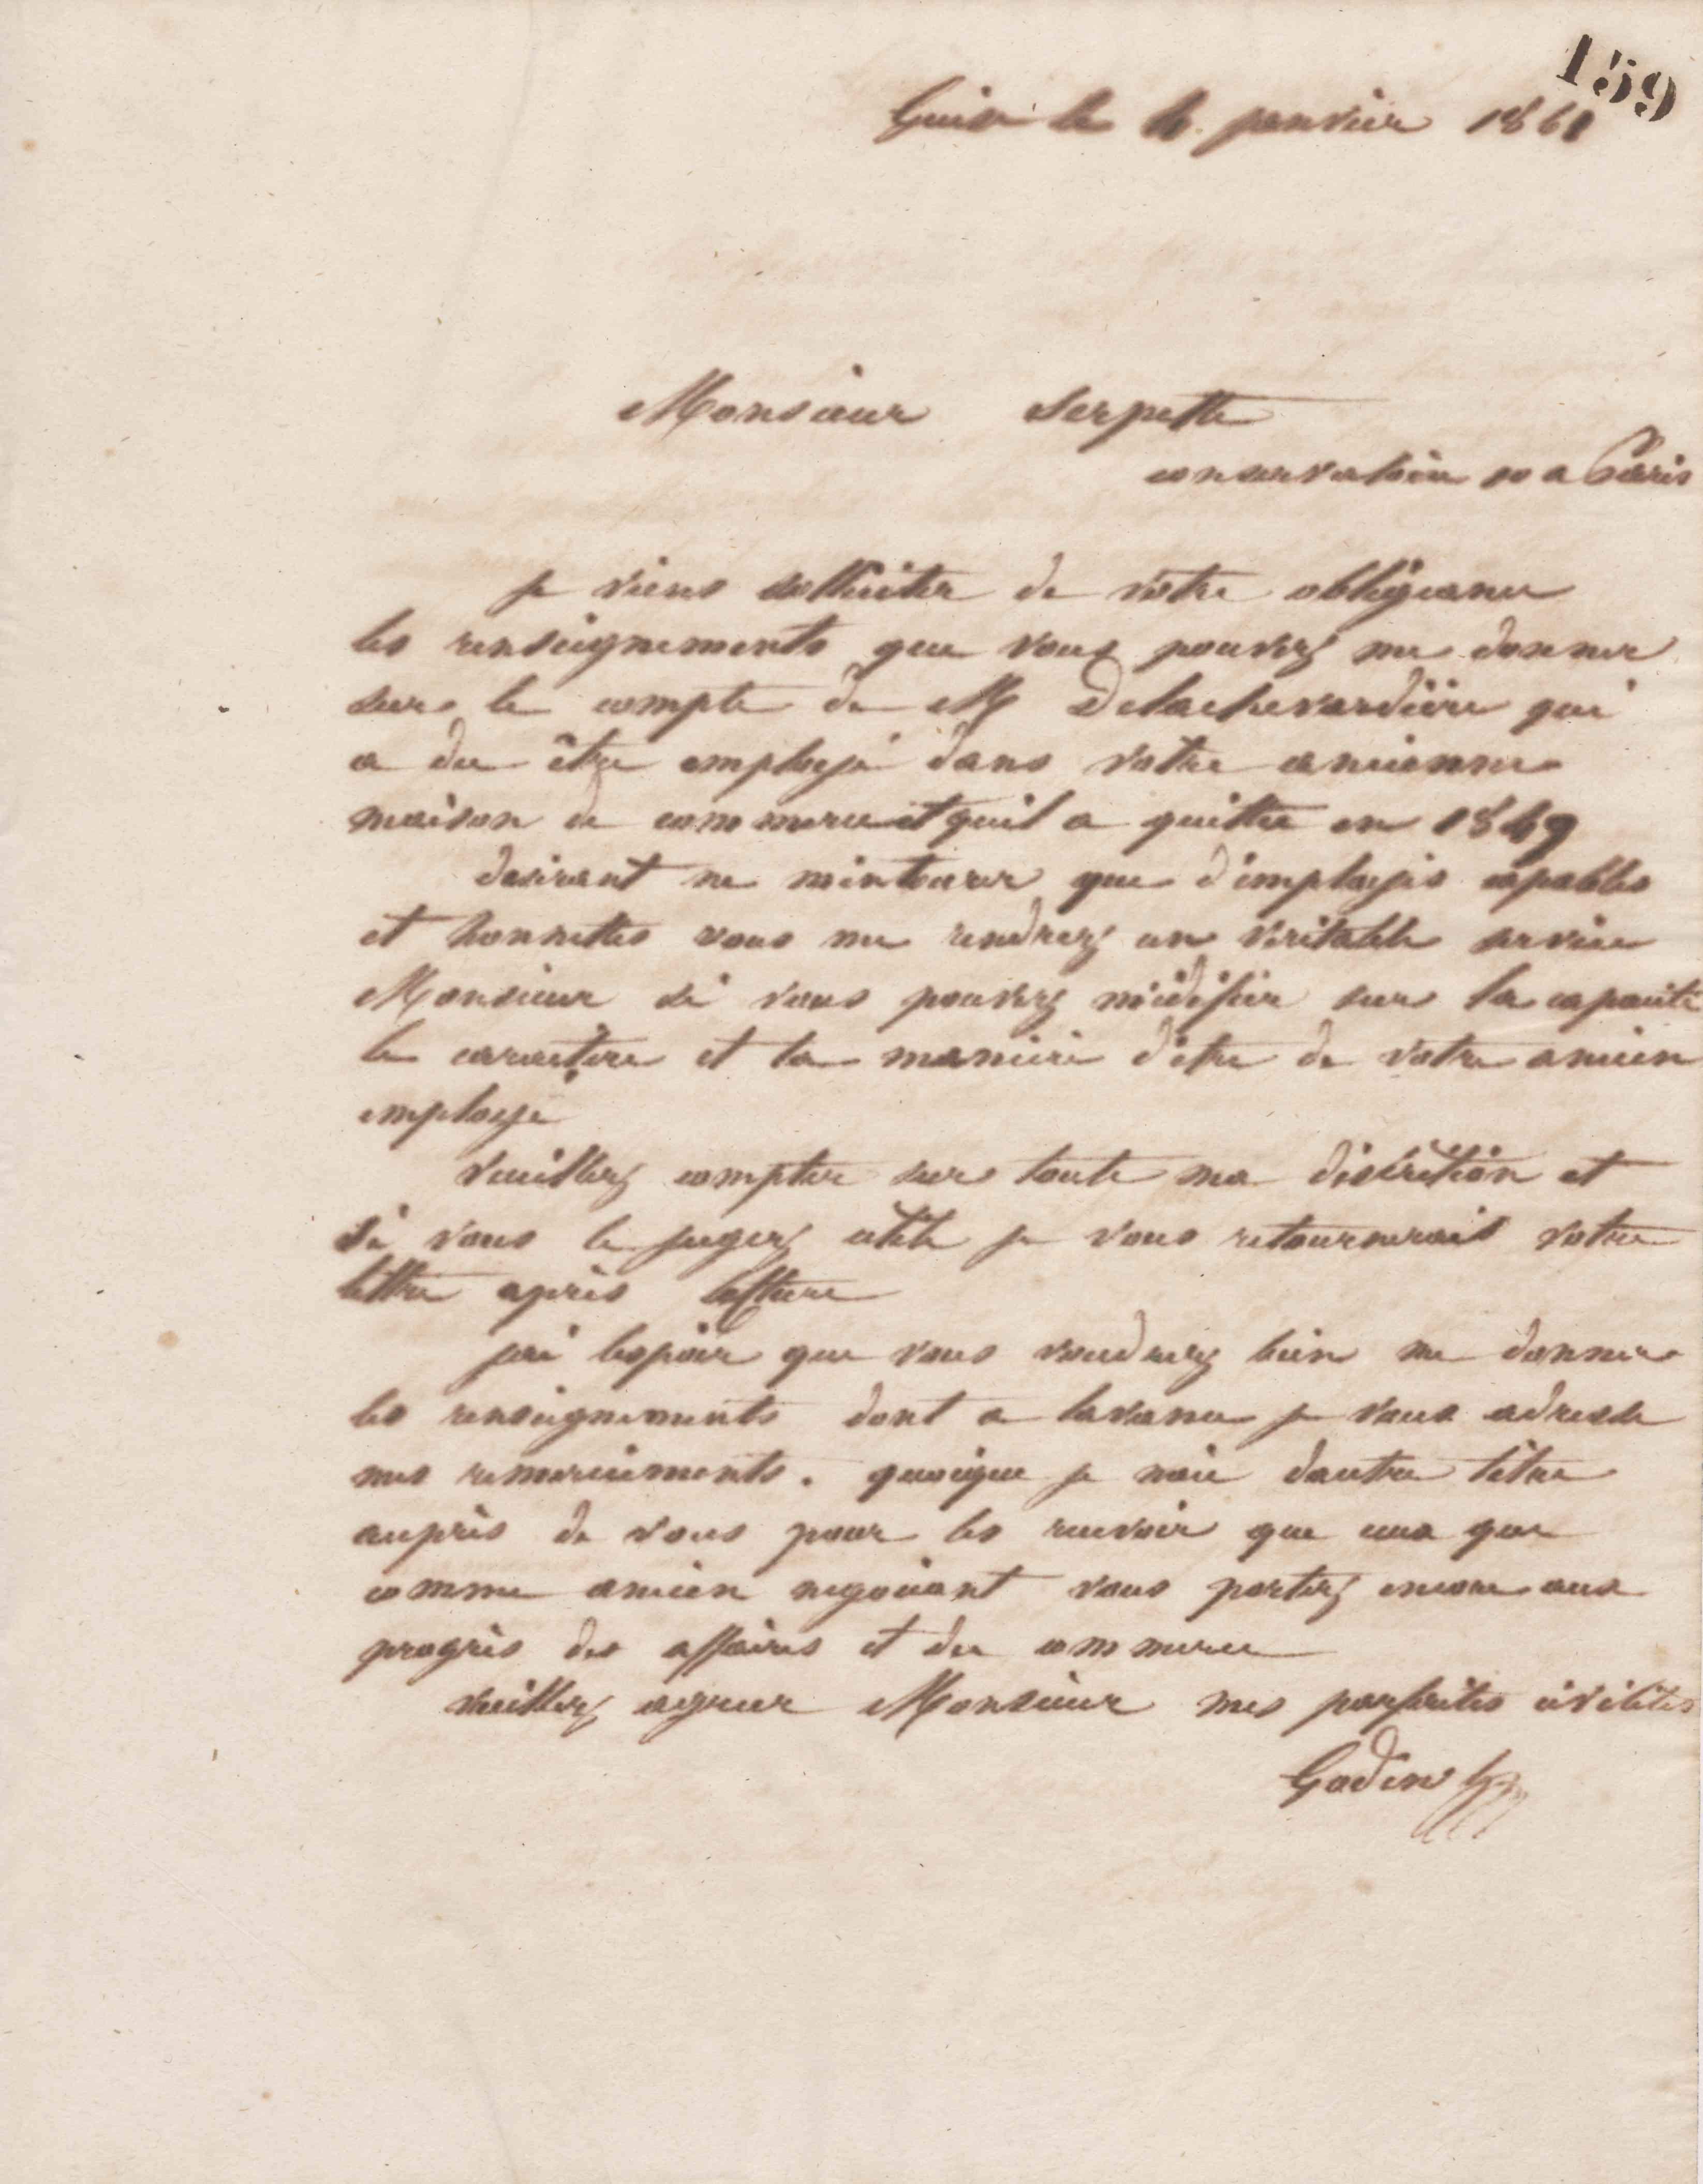 159
Guise le 4 janvier 1861
Monsieur Serpette
conservatoire 10 a Paris
je viens solliciter de votre obligeance
les renseignements que vous pouvez me donner
sur le compte de M Delachevardière qui
a du être employé dans votre ancienne
maison de commerce et quil a quitté en 1849
desirant ne mentourer que d'employés capables
et honnettes vous me rendrez un veritable service
Monsieur si vous pouvez m'édifier sur la capacité
le caractere et la maniere d'etre de votre ancien
employé
Veuillez compter sur toute ma discrétion et
si vous le jugez utile je vous retournerais votre
lettre après lecture
jai lespoir que vous voudrez bien me donner
les renseignements dont a lavance je vous adresse
mes remerciements. quoique je naie dautre titre
auprès de vous pour les recevoir que ceux que
comme ancien negociant vous portez encore aux
progrès des affaires et du commerce
Veuillez agreer Monsieur mes parfaites civilités
Godin